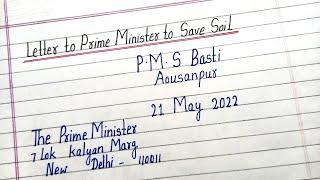 Letter to Prime Minister to Save Soil
P.M.S Basti
Aousanpur
21 May 2022
The Prime Minister
7 Lok Kalyan Marg
New Delhi - 110011